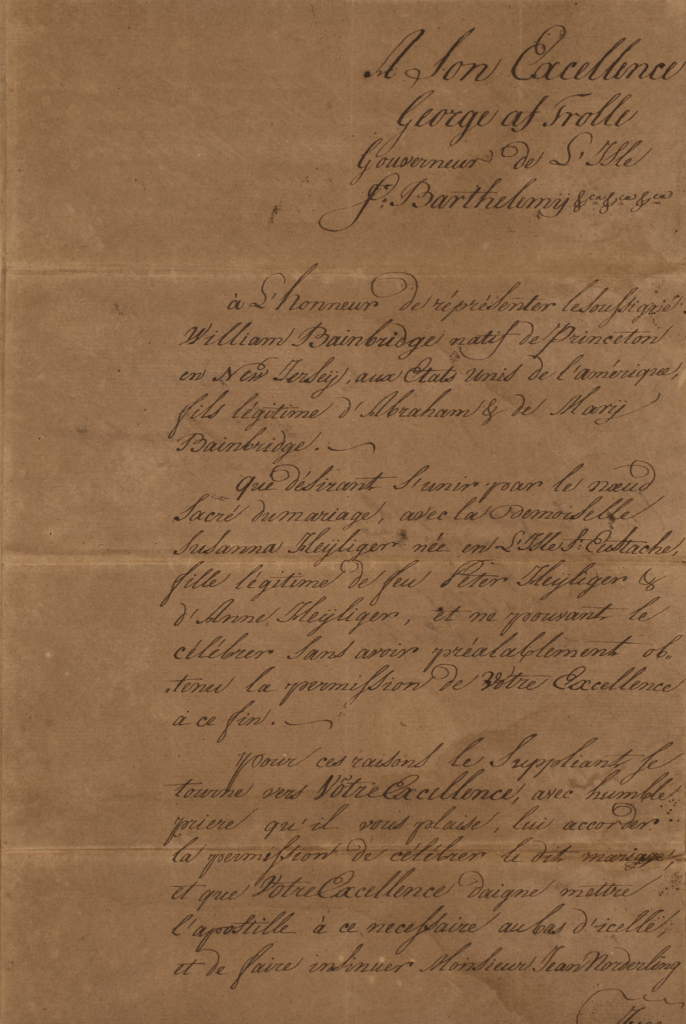 A Son Excellence
George af Trolle
Gouverneur de L'Isle
St. Barthelemij &ca &ca &ca
à L'honneur de réprésenter le soussigné
William Bainbridge natif de Princeton
en New Jerseij, aux Etats unis de l'amérique,
fils légitime d'Abraham & de Marij
Bainbridge.
Que désirant s'unir par le nœud
Sacré du mariage, avec la Demoiselle
Susanna Heijliger née en L'Isle St. Eustache,
fille légitime de feu Pèter Heijliger &
d'Anne Heijliger, et ne pouvant le
célébrer sans avoir préalablement ob-
tenu la permission de Vôtre Excellence
à ce fin.
pour ces raisons le Suppliant se
tourne vers Vôtre Excellence, avec humble
priere qu'il vous plaise, lui accorder
la permission de célébrer le dit mariage
et que Vôtre Excellence daigne mettre
l'apostille à ce necessaire au bas d'icelle,
et de faire insinuer Monsieur Jean Norderling